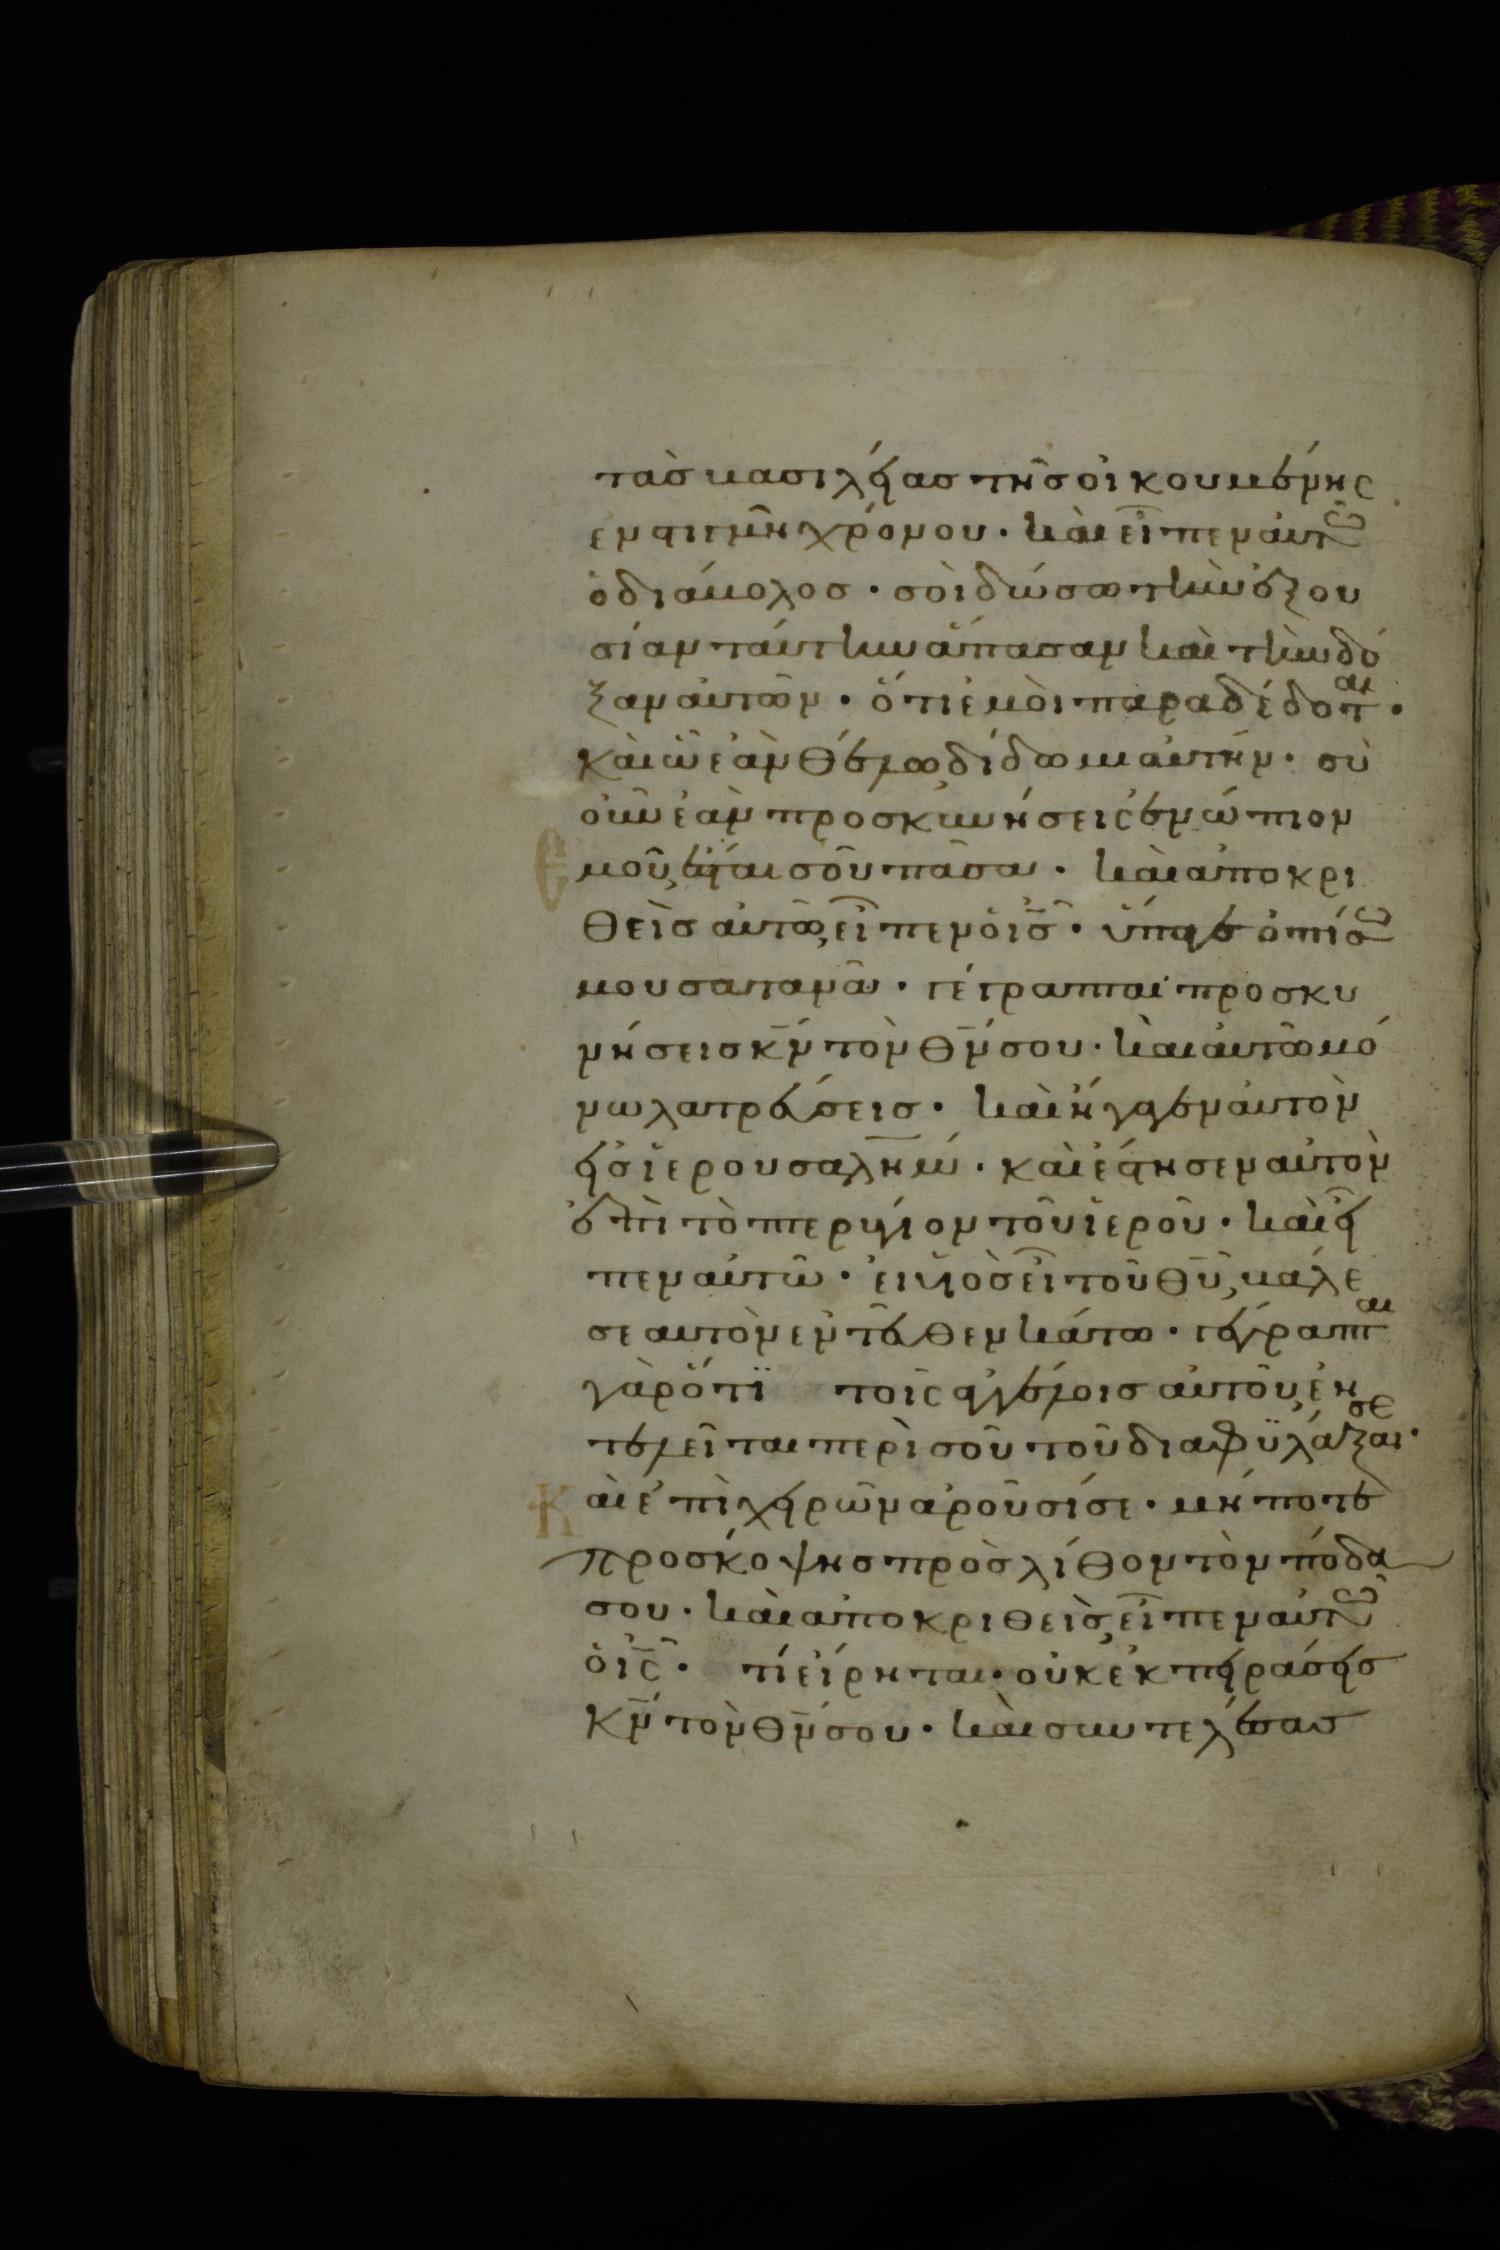 τὰσ βασιλείασ τῆσ οἰκουμένης
ἐν στιγμῆ χρόνου · καὶ εἶπεν αὐτῶ
ὁ διάβολοσ · σοὶ δώσω τὴν ἐξου
σίαν ταύτην ἅπασαν καὶ τὴν δό
ξαν αὐτῶν · ὅτι ἐμοὶ παραδέδοται ·
καὶ ὧ ἐὰν θέλω δίδωμι αὐτήν · σὺ
οὖν ἐὰν προσκυνήσεις ἐνώπιον
μοῦ, ἔσται σοῦ πᾶσα · καὶ ἀποκρι
θεὶσ αὐτῶ, εἶπεν ὁ ις̅ · ὕπαγε ὀπίσω
μου σατανᾶ · γέγραπται προσκυ
νήσεισ κ̅ν̅ τὸν θ̅ν̅ σου · καὶ αὐτῶ μό
νω λατρεύσεισ · καὶ ἤγαγεν αὐτὸν
εἰσ ἱερουσαλήμ · καὶ ἔστησεν αὐτὸν
ἐπὶ τὸ πτερύγιον τοῦ ἱεροῦ · καὶ εἶ
πεν αὐτῶ · εἰ υἱὸσ εἶ τοῦ θ̅υ̅, βάλε
σε αυτὸν ἐντεῦθεν κάτω · γέγραπται
γὰρ ὅτϊ τοῖς ἀγγέλοισ αὐτοῦ, ἐν
τελεῖται περὶ σοῦ τοῦ διαφϋλάξαι σε ·
Καὶ ἐπὶ χειρῶν ἀροῦσί σε · μήποτε
προσκόψησ πρὸσ λίθον τὸν πόδα
σου · καὶ ἀποκριθεὶς, εἶπεν αὐτῶ
ὁ ις̅ · τί εἴρηται · οὐκ ἐκπειράσεισ
κ̅ν̅ τὸν θ̅ν̅ σου · καὶ συντελέσασ